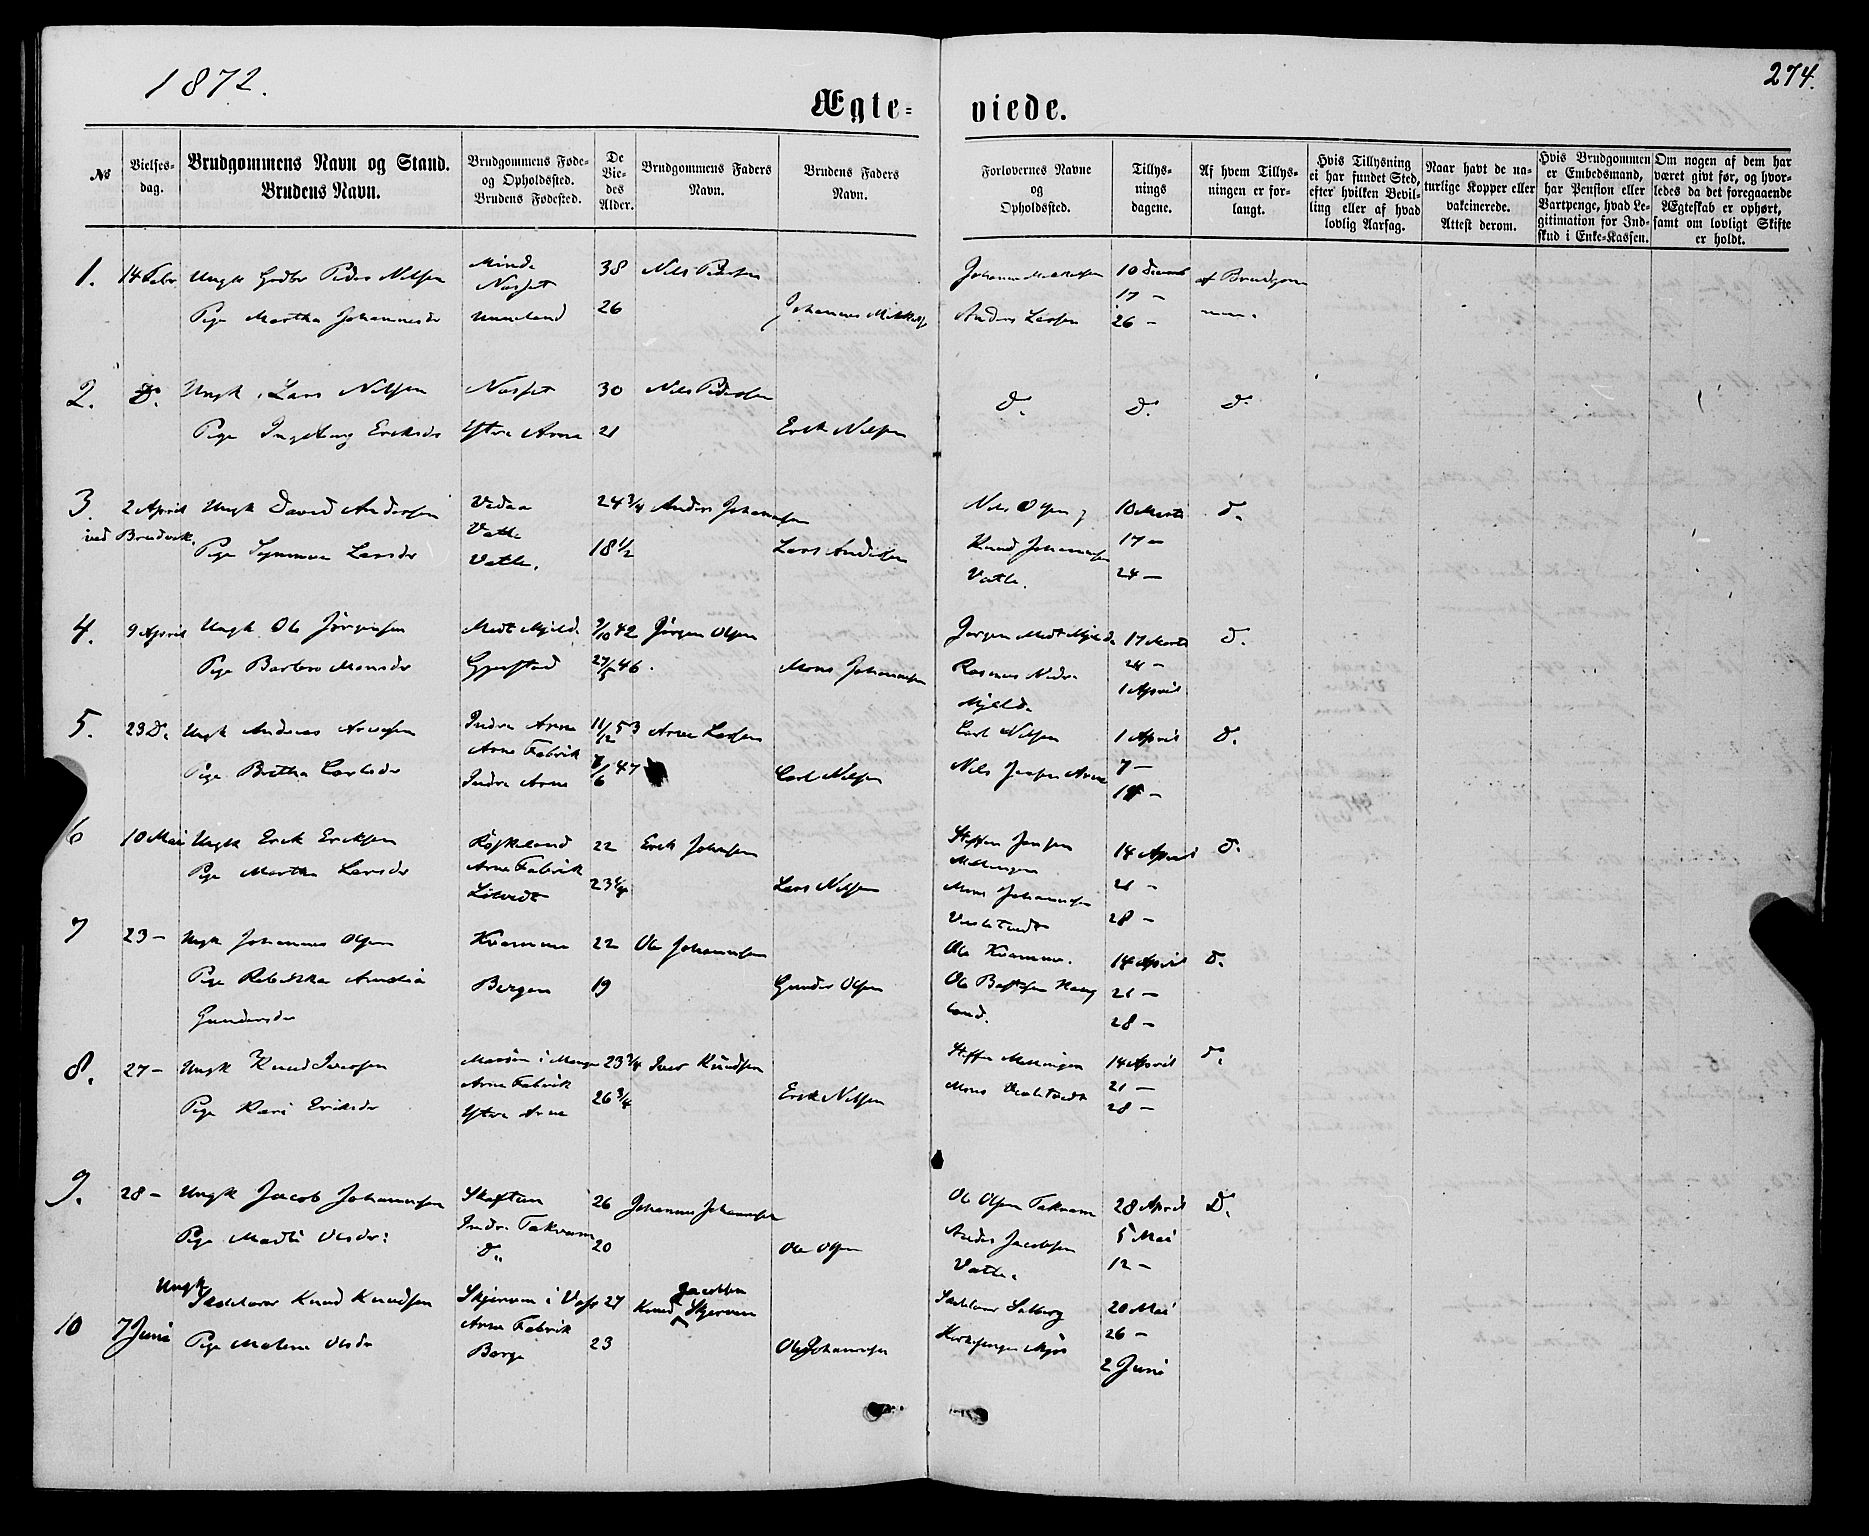 1872.
274.
Ægte=
viede.
No
Vielses-
dag.
Brudgommens Navn og Stand.
Brudens Navn.
Brudgommens Føde-
og Opholdssted.
Brudens Fødested.
De
Vie-
des
Alder.
Brudgommens Faders
Navn.
Brudens Faders
Navn.
Forlovernes Navne
og
Opholdssted.
Tillys-
nings
dagene.
Af hvem Tillys-
ningen er for-
langt.
Hvis Tillysning
ei har fundet Sted,
efter hvilken Bevil-
ling eller af hvad
lovlig Aarsag.
Naar havt de na-
turlige Kopper eller
vakcinerede.
Attest derom.
Hvis Brudgommen
er Embedsmand,
har Pension eller
Vartpenge, hvad Le-
gitimation for Ind-
skud i Enke-Kassen.
Om nogen af dem har
været givt før, og hvor-
ledes da det foregaaende
Ægteskab er ophørt,
samt om lovligt Skifte
er holdt.
1. 14 Febr Ungk Peder Nilsen Minde 38 Nils Pedersen 10 af Brudgom
Nasset 17 -
Pige Martha Johannesdr Unneland 26 Johannes Anders Larsen 26 - men.
2. D. Ungk. Lars Nilsen Nasset 30 Nils Pedersen D. D. D.
Pige Ingeborg Eriksdr Ytre Arne 21 Erik Nilsen
3. 2 April Ungk David Andersen Vedaa 24 3/4 Anders Johannesen Nils Olsen 10 Marts D.
ved Bruvik. Vatle Knud Johannesen 17 -
Pige Synneva Larsdr Vatle. 18 1/2 Lars Andersen Vatle. 24 -
4. 9 April Ungk Ole Jørgensen Midt Mjelde 9/10 42 Jørgen Olsen Jørgen Midt Mjelde 17 Marts D.
Pige Barbro Monsdr 46. Mons Johannesen Rasmus Nedre 24 -
Mjelde 1 April
5. 23 D. Ungk Andreas Arnesen Indre Arne 11/12 53 Arne Larsen Carl Nilsen 1 April D.
Arne Fabrik 7 -
Pige Britha Carlsdr Indre Arne 47 Carl Nilsen Nils Arne 14 -
6 10 Mai Ungk Erik Eriksen Røskeland 22 Erik Johnsen Steffen Jensen 14 April D.
Pige Martha Larsdr Arne Fabrik Mellingen 21 -
23 1/4 Lars Nilsen Mons Johannesen 28 -
7 23 - Ungk Johannes Olsen Kvamme 22 Ole Johannesen Ole Kvamme. 14 April D.
Pige Rebekka Amalia Bergen 19 Gunder Olsen Ole Haug 21 -
Gundersdr land. 28 -
8. 27 - Ungk Knud Iversen i Manger 23 3/4 Iver Knudsen Steffen Mellingen 14 April D.
Arne Fabrik Mons 21 -
Pige Kari Eriksdr Ytre Arne 26 3/4 Erik Nilsen 28 -
9. 28 - Ungk Jacob Johannesen Skaftun 26 Johannes Johannesen Ole Olsen Takvam 28 April D.
Indre Takvam Anders Jacobsen 5 Mai
Pige Olsdr: D. 20 Ole Olsen Vatle. 12 -
Ungk Jacobsen
10 7 Juni Knud Knudsen Skjerven i Voss 27 Knud Skjerven 20 Mai
Arne Fabrik 26 -
Pige Malena Olsdr Borge 23 Ole Johannesen Kirkesanger 2 Juni